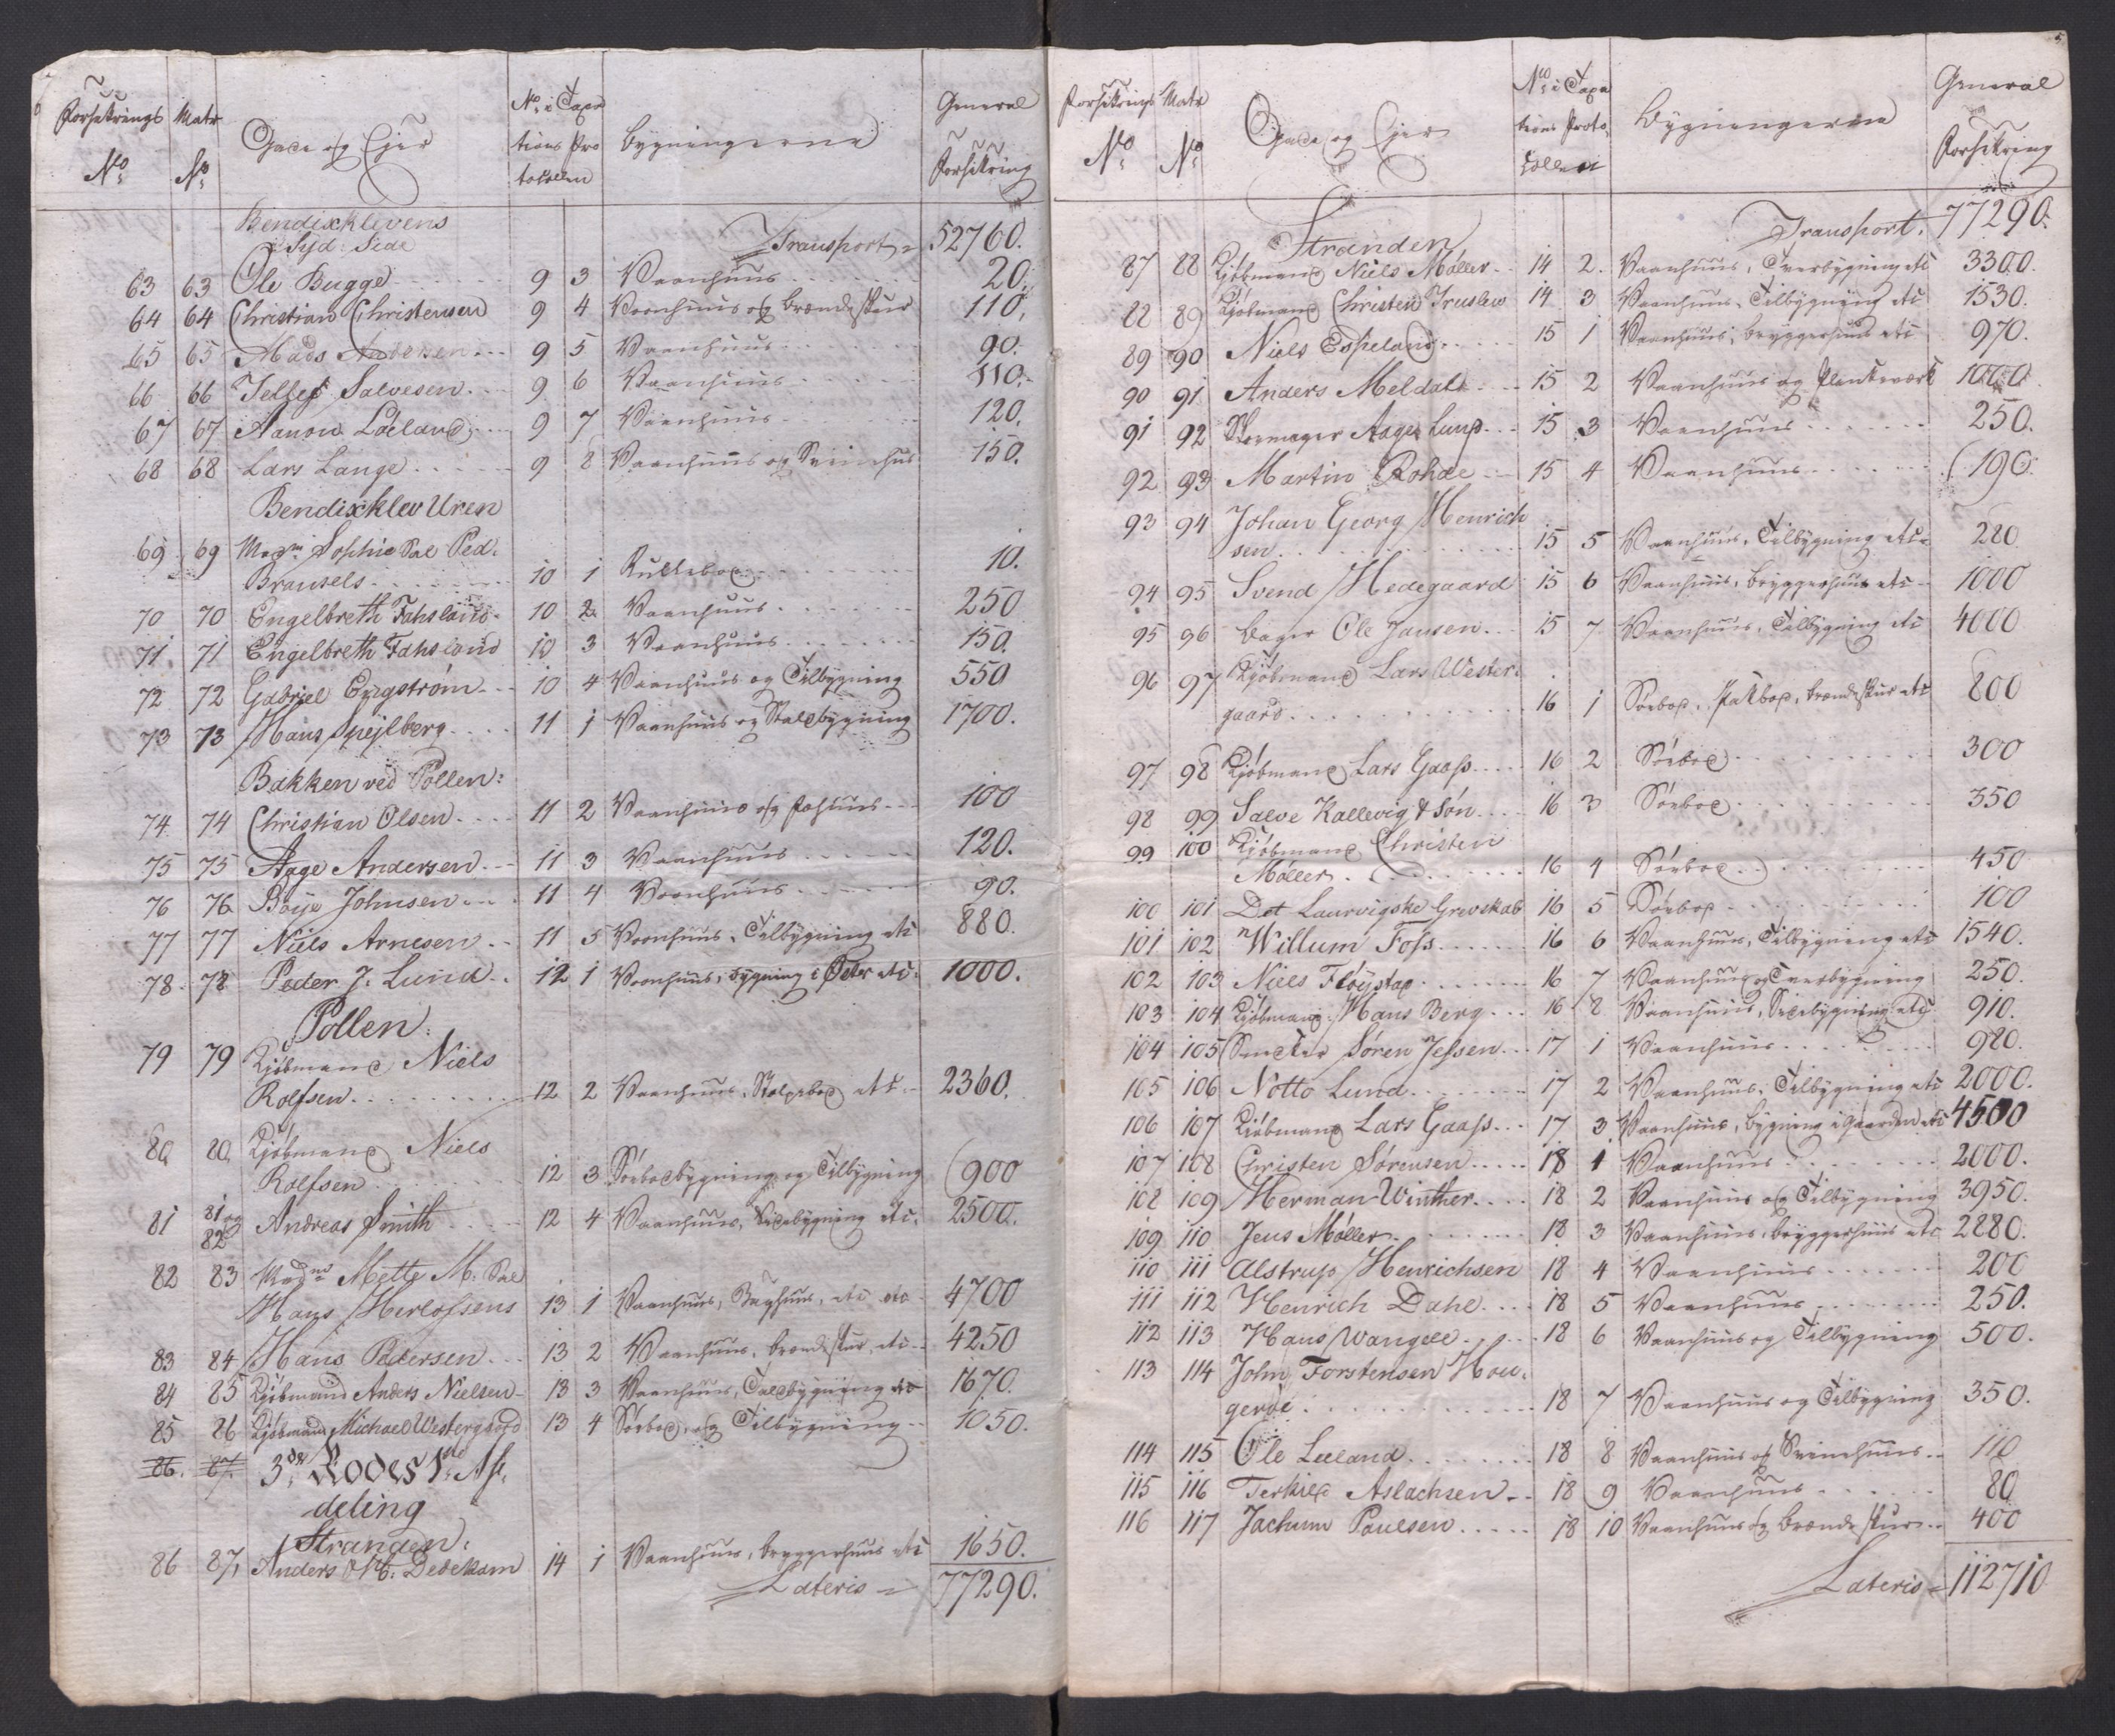 Forsikrings Matr No i Taxa General
Gade og Ejer tions Pro Bygningerne
No No tocollen Forsikring
Bendixklevens
Syd: Side Transport 52760.
63 63 Ole Bugge 9 3 Vaanhuus 20.
64 64 Christian Christensen 9 4 Vaanhuus og Brændeskur 110.
65 65 Mads Andersen 9 5 Vaanhuus 90.
66 66 Tellef Salvesen 9 6 Vaanhuus 110.
67 67 Aanon Löeland 9 7 Vaanhuus 120.
68 68 Lars Lange 9 8 Vaanhuus og Sviinhus 150.
Bendixklev Uren
69 69 Sophie Sal Ped.
Brausels 10 1 10.
70 70 Engelbreth Fahsland 10 2 Vaanhuus 250
71 71 Engelbreth Fahsland 10 3 Vaanhuus 150.
72 72 Gabriel Engström 10 4 Vaanhuus og Tilbygning 550
73 73 Hans Spejlberg 11 1 Vaanhuus og Staldbygning 1700.
Bakken ved Pollen:
74 74 Christian Olsen 11 2 Vaanhuus og 100
75 75 Aage Andersen 11 3 Vaanhuus 120.
76 76 Böije Johnsen 11 4 Vaanhuus 90.
77 77 Niels Arnesen 11 5 Vaanhuus, Tilbygning etc 880.
78 78 Peder J. Lund 12 1 Vaanhuus, bygning i Öster etc. 1000.
Pollen:
79 79 Kjöbmand Niels
Rolfsen 12 2 Vaanhuus, etc 2360.
80 80 Kjöbmand Niels
Rolfsen 12 3 Söebodbygning og Tilbygning 900
81 81 og 82 Andreas Smith 12 4 Vaanhuus, Sidebygning etc. 2500.
82 83 Mette M: Sal
Hans Herlofsens 13 1 Vaanhuus, Baghuus, etc etc 4700
83 84 Hans Pedersen 13 2 Vaanhuus, Brændeskur, etc 4250
84 85 Kjöbmand Anders Nielsen 13 3 Vaanhuus, etc 1670.
85 86 Kjöbmand Michael Westergaard 13 4 Söebod, og Tilbygning 1050.
86. 87. 3de Rodes 1ste Af-
deling
Stranden:
86 87, Anders Dedekam 14 1 Vaanhuus, bryggerhuus etc 1650.
Lateris 77290.
Forsikrings Matr No i Taxa General
Gade og Ejer tions Proto- Bygningerne
No No collen Forsikring
Stranden Transport. 77290.
87 88 Kjöbmand Niels Möller 14 2. Vaanhuus, Tverbygning etc 3300.
88 89 Kjöbmand Christen Truslew 14 3 Vaanhuus, Tilbygning etc 1530.
89 90 Niels Espeland 15 1 Vaanhuus, bryggerhuus etc 970.
90 91 Anders Meldahl 15 2 Vaanhuus og Plankeværk 1000
91 92 Skomager Aage Lund 15 3 Vaanhuus 250.
92 93 Martin Rohde 15 4 Vaanhuus 190.
93 94 Johan Georg Henrich
sen 15 5 Vaanhuus, Tilbygning etc 280
94 95 Svend Hedegaard 15 6 Vaanhuus, bryggerhuus etc 1000
95 96 Bager Ole Jansen 15 7 Vaanhuus, Tilbygning etc 4000
96 97 Kjöbmand Lars Wester-
gaard 16 1 Söebod, Pakbod, brændeskur etc 800
97 98 Kjöbmand Lars Gaasß 16 2 Söebod 300
98 99 Salve Kallevig & Sön 16 3 Söebod 350
99 100 Kjöbmand Christen
Möller 16 4 Söebod 450
100 101 Det Laurvigske Grevskab 16 5 Söebod 100
101 102 Willum Foss 16 6 Vaanhuus, Tilbygning etc 1540.
102 103 Niels Flöystad 16 7 Vaanhuus og Tverbygning 250.
103 104 Kjöbmand Hans Berg 16 8 Vaanhuus, Sidebygning etc 910.
104 105 Sören Jessen 17 1 Vaanhuus 980.
105 106 Notto Lund 17 2 Vaanhuus, Tilbygning etc 2000.
106 107 Kjöbmand Lars Gaasß 17 3 Vaanhuus, bygning i Gaarden etc 4500
107 108 Christen Sörensen 18 1 Vaanhuus 2000.
108 109 Herman Winther 18 2 Vaanhuus og Tilbygning 3950.
109 110 Jens Möller 18 3 Vaanhuus, bryggerhuus etc 2880.
110 111 Alstrup Henrichsen 18 4 Vaanhuus 200
111 112 Henrich Dahl 18 5 Vaanhuus 250.
112 113 Hans Wangell 18 6 Vaanhuus og Tilbygning 500.
113 114 John Torstensen Hou-
gerde 18 7 Vaanhuus og Tilbygning 350.
114 115 Ole Leeland 18 8 Vaanhuus og Sviinehuus 110
115 116 Terkild Aslachsen 18 9 Vaanhuus 80
116 117 Jachum Paulsen 18 10 Vaanhuus og Brændeskur 400
Lateris 112710